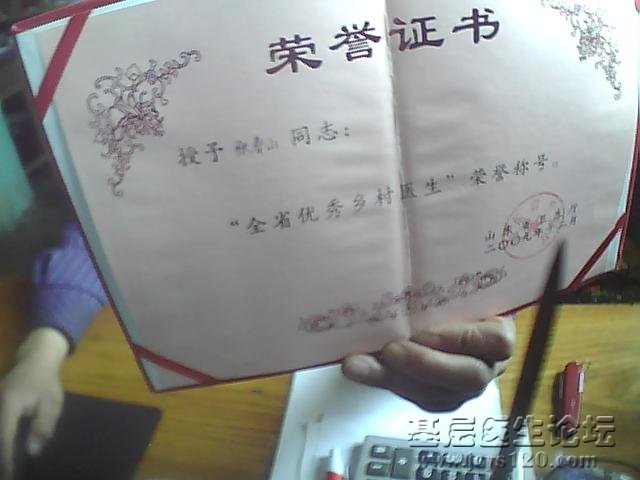 荣誉证书
授予 同志：
“全省优秀乡村医生”荣誉称号。
山东省卫生厅
二〇〇九年十二月
基层医生论坛
www.jcys120.com